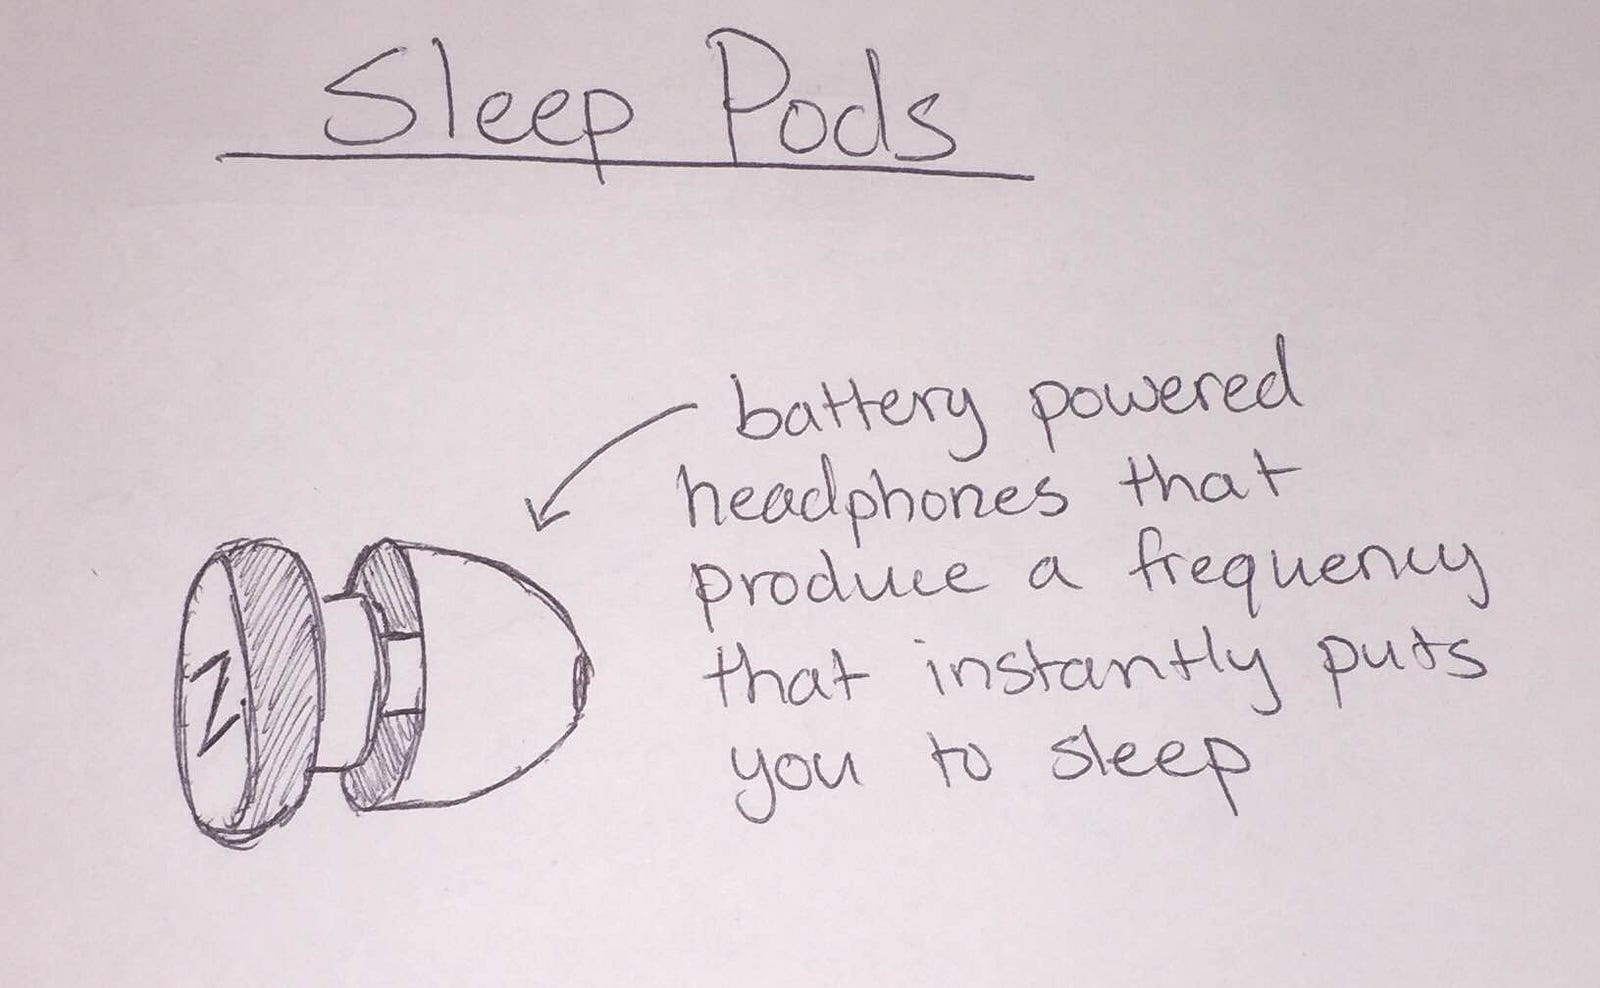 Sleep Pods
battery powered
headphones that
produce a frequency
that instantly puts
you to sleep
Z